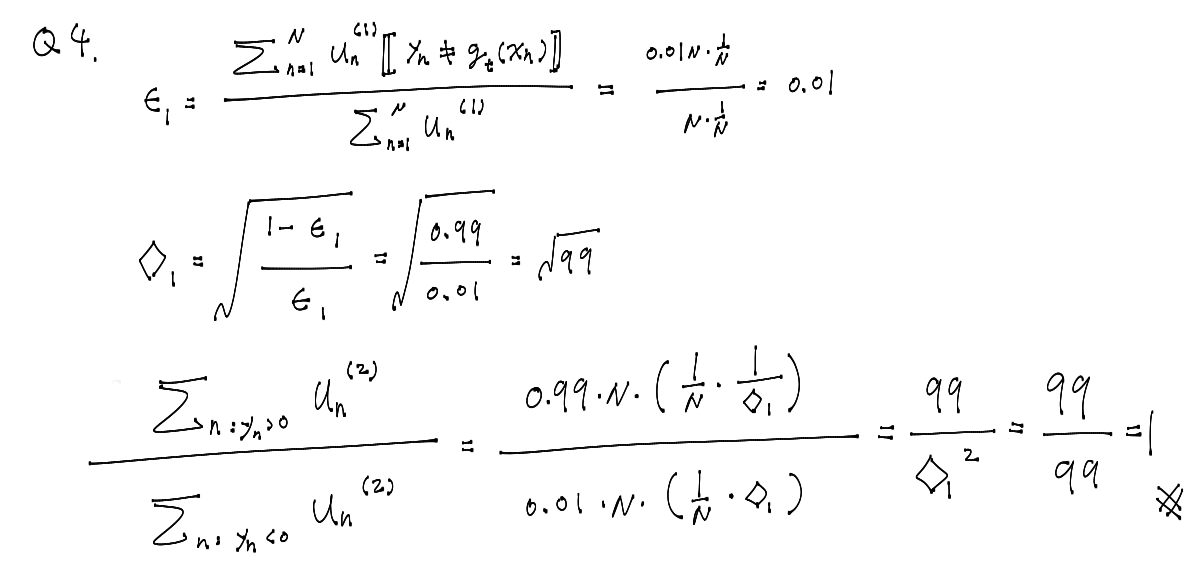 Q4.
ϵ₁ = \frac{\sum_{n=1}^{N} u_n^{(1)} [[ y_n ≠ g_t(x_n) ]]}{\sum_{n=1}^{N} u_n^{(1)}} = \frac{0.01N·\frac{1}{N}}{N·\frac{1}{N}} = 0.01
◇₁ = \sqrt{\frac{1-ϵ₁}{ϵ₁}} = \sqrt{\frac{0.99}{0.01}} = \sqrt{99}
\frac{\sum_{n:y_n>0} u_n^{(2)}}{\sum_{n:y_n<0} u_n^{(2)}} = \frac{0.99·N·(\frac{1}{N}·\frac{1}{◇₁})}{0.01·N·(\frac{1}{N}·◇₁)} = \frac{99}{◇₁^2} = \frac{99}{99} = 1 ※